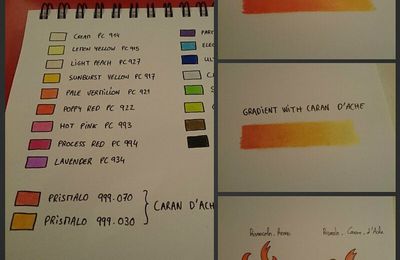 CREAM PC 914
LEMON YELLOW PC 915
LIGHT PEACH PC 927
SUNBURST YELLOW PC 917
PALE VERMILION PC 921
POPPY RED PC 922
HOT PINK PC 993
PROCESS RED PC 994
LAVENDER PC 934
PRISMALO 999.070
PRISMALO 999.030
CARAN D'ACHE
PAR
ELE
UL
GRADIENT WITH CARAN D'ACHE
Prismalo - Caran d'Ache